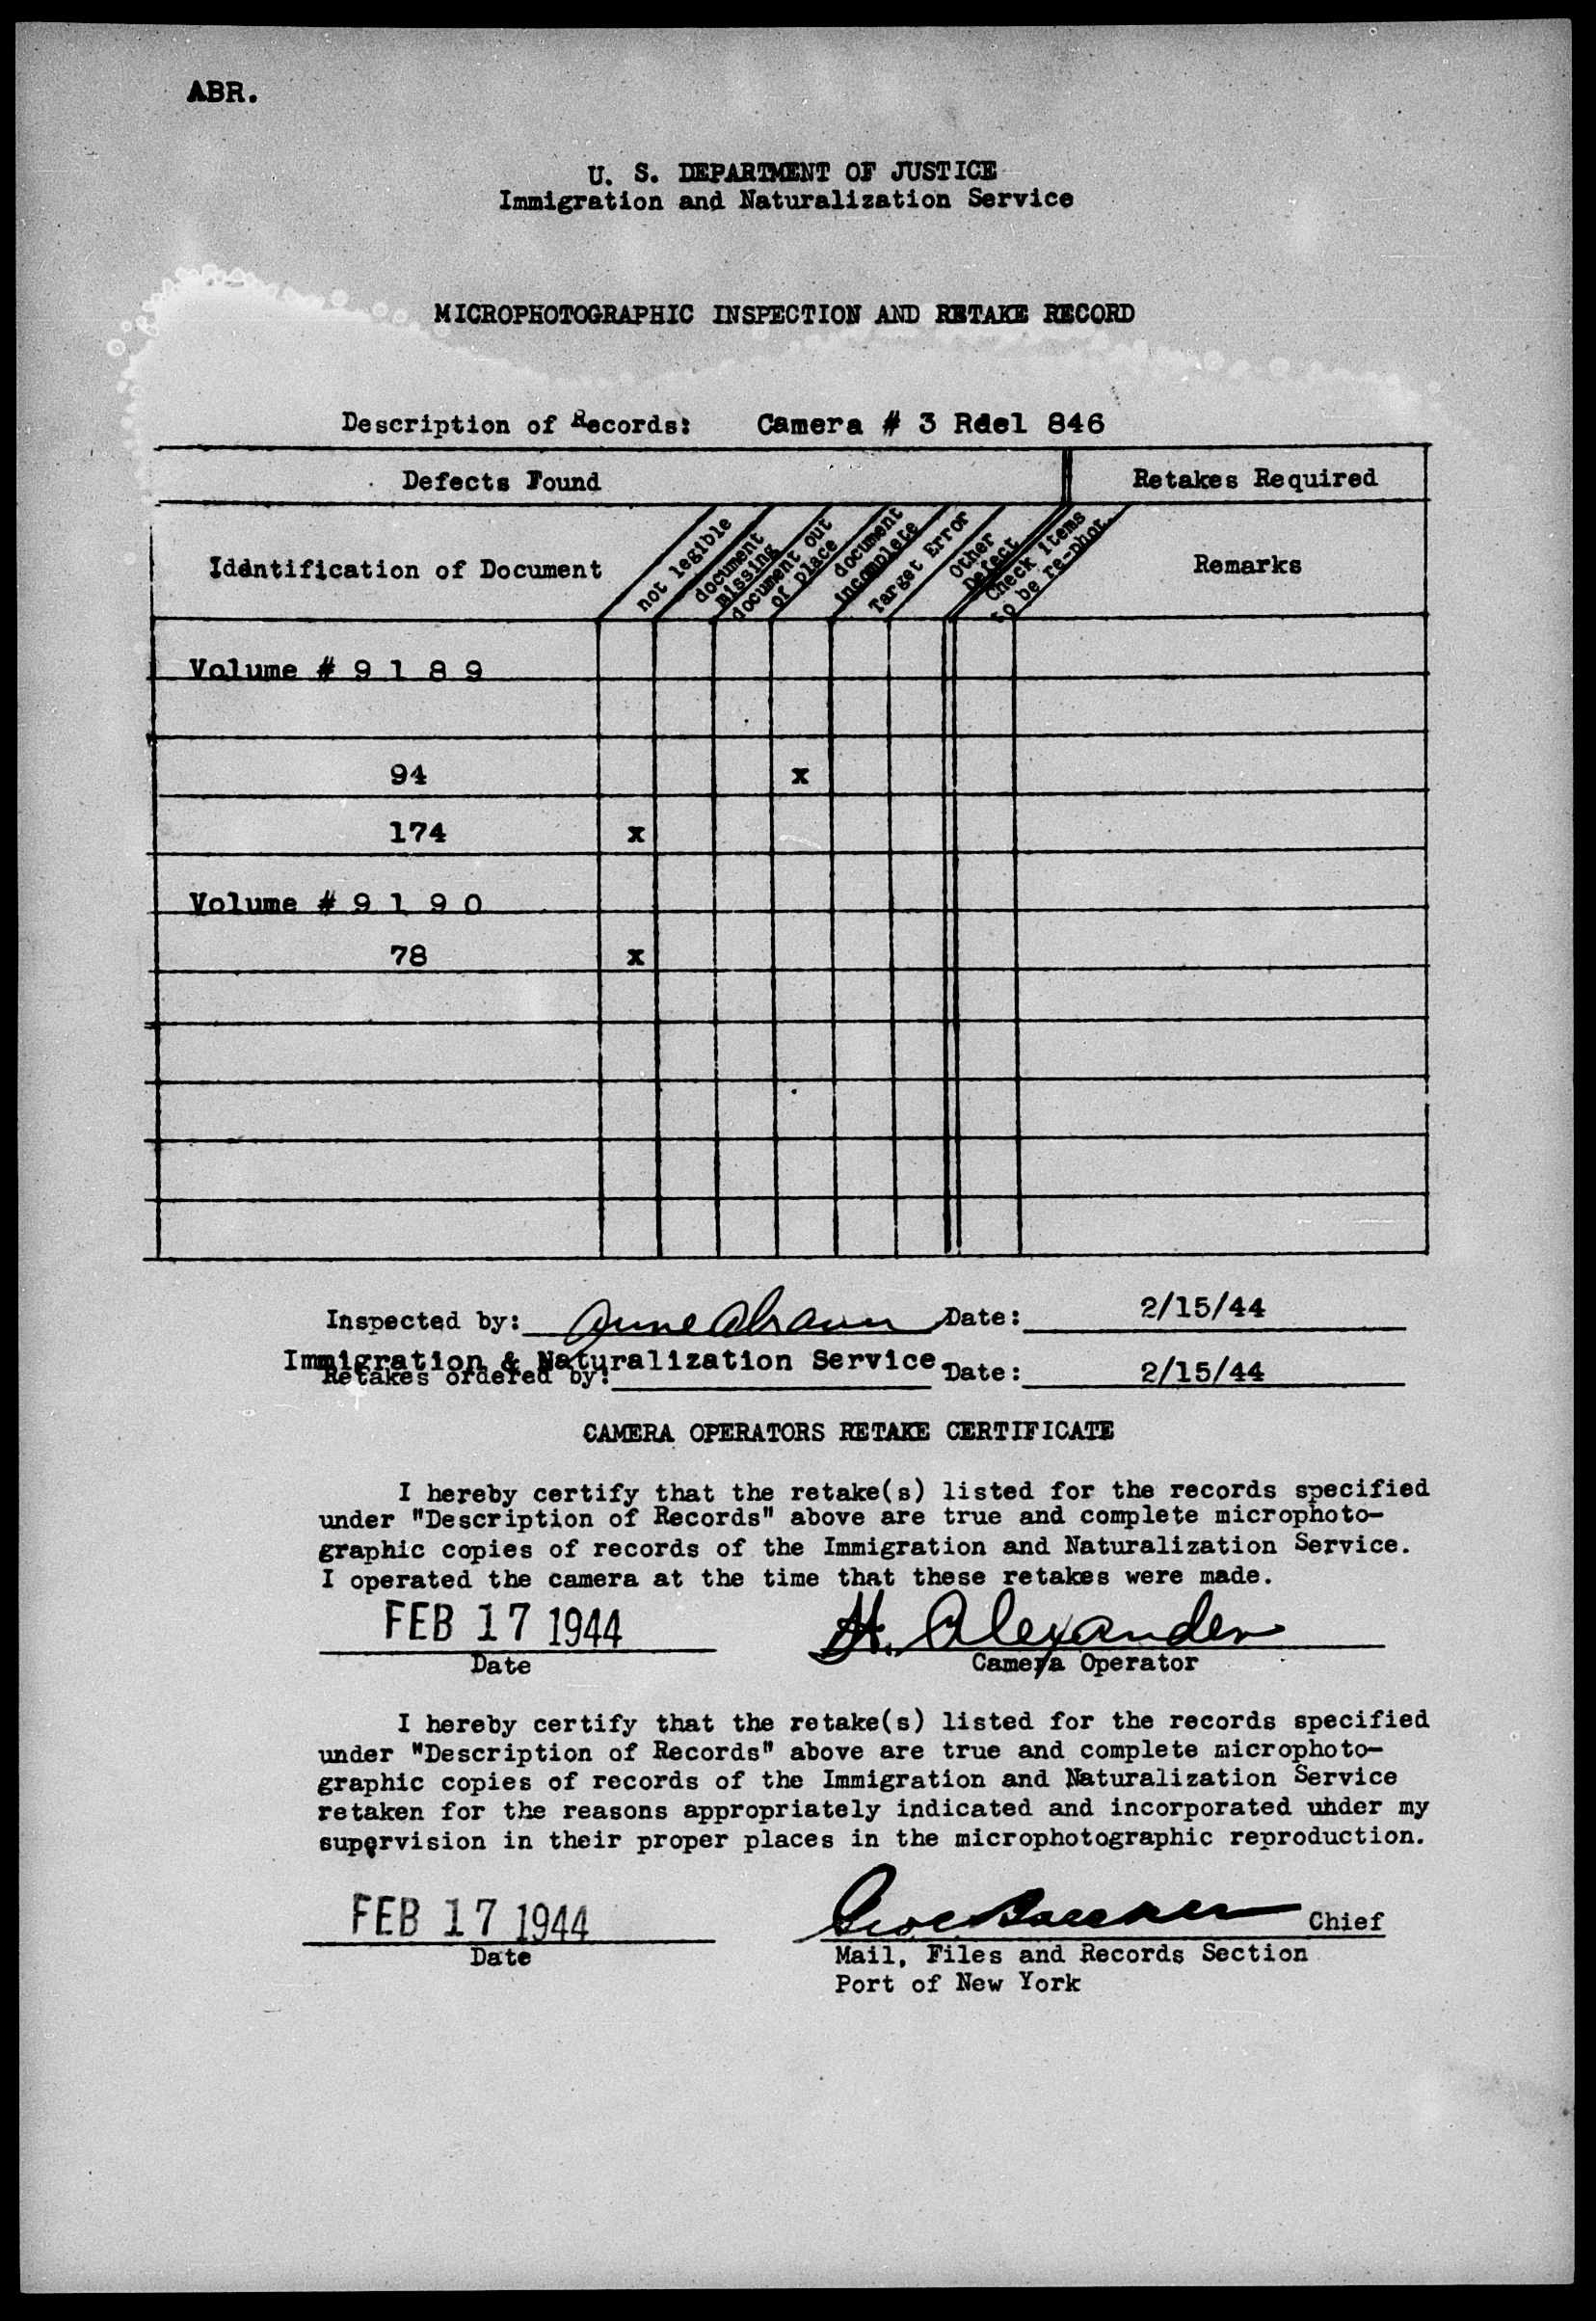 ABR.
U. S. DEPARTMENT OF JUSTICE
Immigration and Naturalization Service
MICROPHOTOGRAPHIC INSPECTION AND RETAKE RECORD
Description of Records: Camera # 3 Rdel 846
Defects Found Retakes Required
Iddntification of Document not legible document missing document out of place document incomplete Target Error Other Defect Check items to be re-phot. Remarks
Volume # 9 1 8 9
94 x
174 x
Volume # 9 1 9 0
78 x
Inspected by: Anne Date: 2/15/44
Immigration & Naturalization Service
Retakes ordered by: Date: 2/15/44
CAMERA OPERATORS RETAKE CERTIFICATE
I hereby certify that the retake(s) listed for the records specified
under "Description of Records" above are true and complete microphoto-
graphic copies of records of the Immigration and Naturalization Service.
I operated the camera at the time that these retakes were made.
FEB 17 1944 H. Alexander
Date Camera Operator
I hereby certify that the retake(s) listed for the records specified
under "Description of Records" above are true and complete microphoto-
graphic copies of records of the Immigration and Naturalization Service
retaken for the reasons appropriately indicated and incorporated uhder my
supervision in their proper places in the microphotographic reproduction.
FEB 17 1944 Chief
Date Mail, Files and Records Section
Port of New York